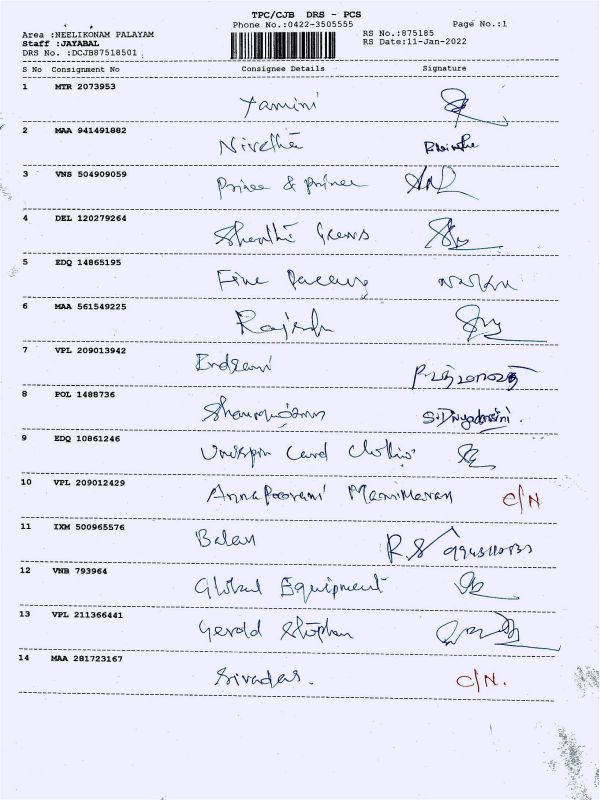 TPC/CJB DRS - PCS
Phone No.:0422-3505555 Page No.:1
Area :NEELIKONAM PALAYAM RS No.:875185
Staff :JAYABAL RS Date:11-Jan-2022
DRS No. :DCJB87518501
S No Consignment No Consignee Details Signature
1 MTR 2073953 Yamini
2 MAA 941491882 Nivetha
3 VNS 504909059 Prince & Prince
4 DEL 120279264
5 EDQ 14865195 Fine
6 MAA 561549225 Rajesh
7 VPL 209013942
8 POL 1488736 S.Divyadarsini.
9 EDQ 10861246 Unispin Card Clothing
10 VPL 209012429 Annapoorani Manimaran C/N
11 IXM 500965576 Balan R.S
12 VNB 793964 Global Equipment
13 VPL 211366441 Gerold Stephen
14 MAA 281723167 Sivadas. C/N.